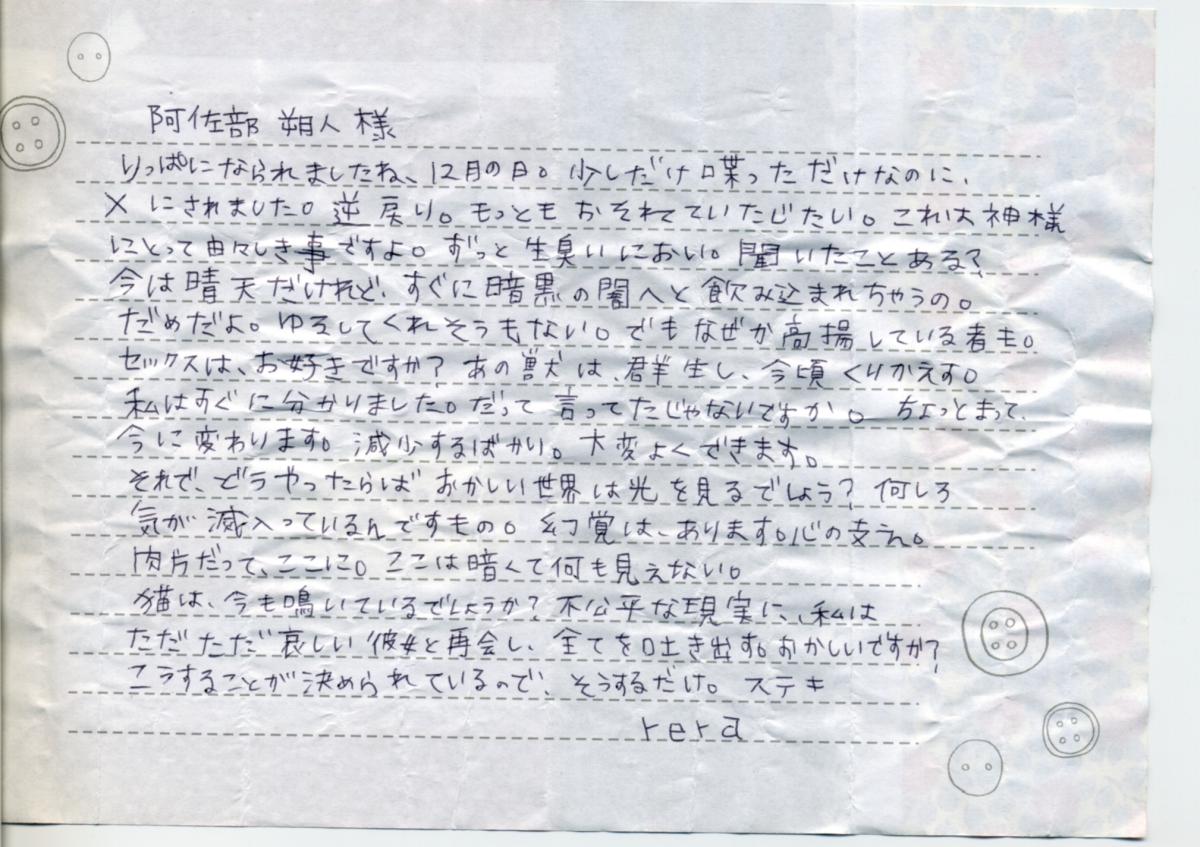 阿佐部 朔人 様
りっぱになられましたね、12月の日。少しだけ喋っただけなのに、
×にされました。逆戻り。もっともおそれていたじたい。これは神様
にとって由々しき事ですよ。ずっと生臭いにおい。聞いたことある?
今は晴天だけれど、すぐに暗黒の闇へと飲み込まれちゃうの。
だめだよ。ゆるしてくれそうもない。でもなぜか高揚している者も。
セックスは、お好きですか?あの獣は、群生し、今頃くりかえす。
私はすぐに分かりました。だって言ってたじゃないですか。ちょっとまって、
今に変わります。減少するばかり。大変よくできます。
それで、どうやったらば おかしい世界は光を見るでしょう?何しろ
気が滅入っているんですもの。幻覚は、あります。心の支え。
肉片だって、ここに。ここは暗くて何も見えない。
猫は、今も鳴いているでしょうか?不公平な現実に、私は
ただただ哀しい彼女と再会し、全てを吐き出す。おかしいですか?
こうすることが決められているので、そうするだけ。ステキ
rera